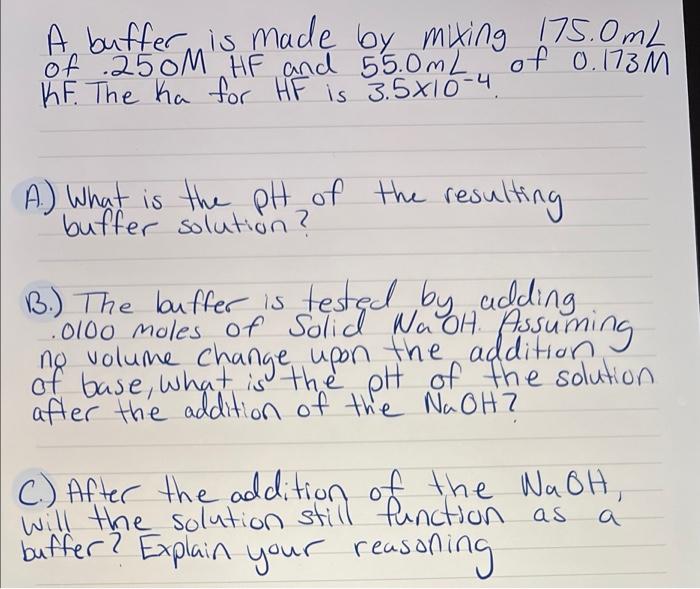 A buffer is made by mixing 175.0mL
of .250M HF and 55.0mL of 0.173M
KF. The Ka for HF is 3.5x10-4.
A.) What is the pH of the resulting
buffer solution?
B.) The buffer is tested by adding
.0100 moles of Solid NaOH. Assuming
no volume change upon the addition
of base, what is the pH of the solution
after the addition of the NaOH?
C.) After the addition of the NaOH,
will the solution still function as a
buffer? Explain your reasoning